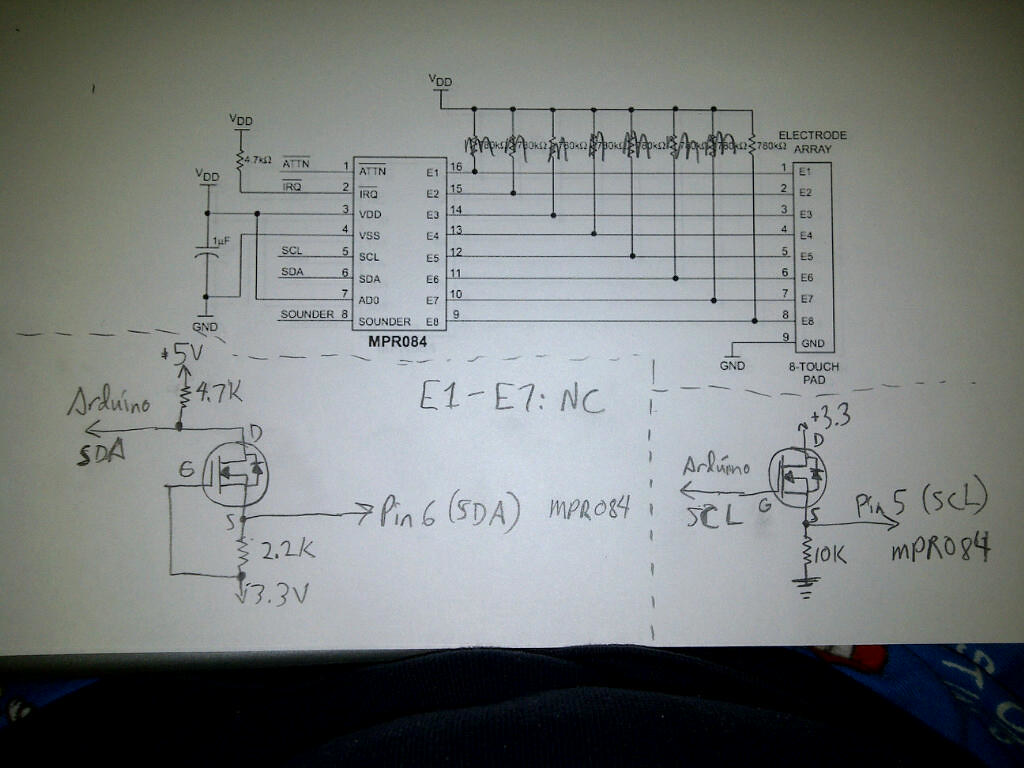 VDD
VDD
4.7kΩ
VDD
1µF
GND
ATTN
IRQ
SCL
SDA
SOUNDER
1 ATTN E1 16
2 IRQ E2 15
3 VDD E3 14
4 VSS E4 13
5 SCL E5 12
6 SDA E6 11
7 AD0 E7 10
8 SOUNDER E8 9
MPR084
780kΩ
ELECTRODE
ARRAY
1 E1
2 E2
3 E3
4 E4
5 E5
6 E6
7 E7
8 E8
9 GND
GND
8-TOUCH
PAD
+5V
4.7K
Arduino
SDA
D
G
S
Pin 6 (SDA) MPR084
2.2K
3.3V
E1-E7: NC
+3.3
D
Arduino
SCL
G
S
Pin 5 (SCL)
MPR084
10K